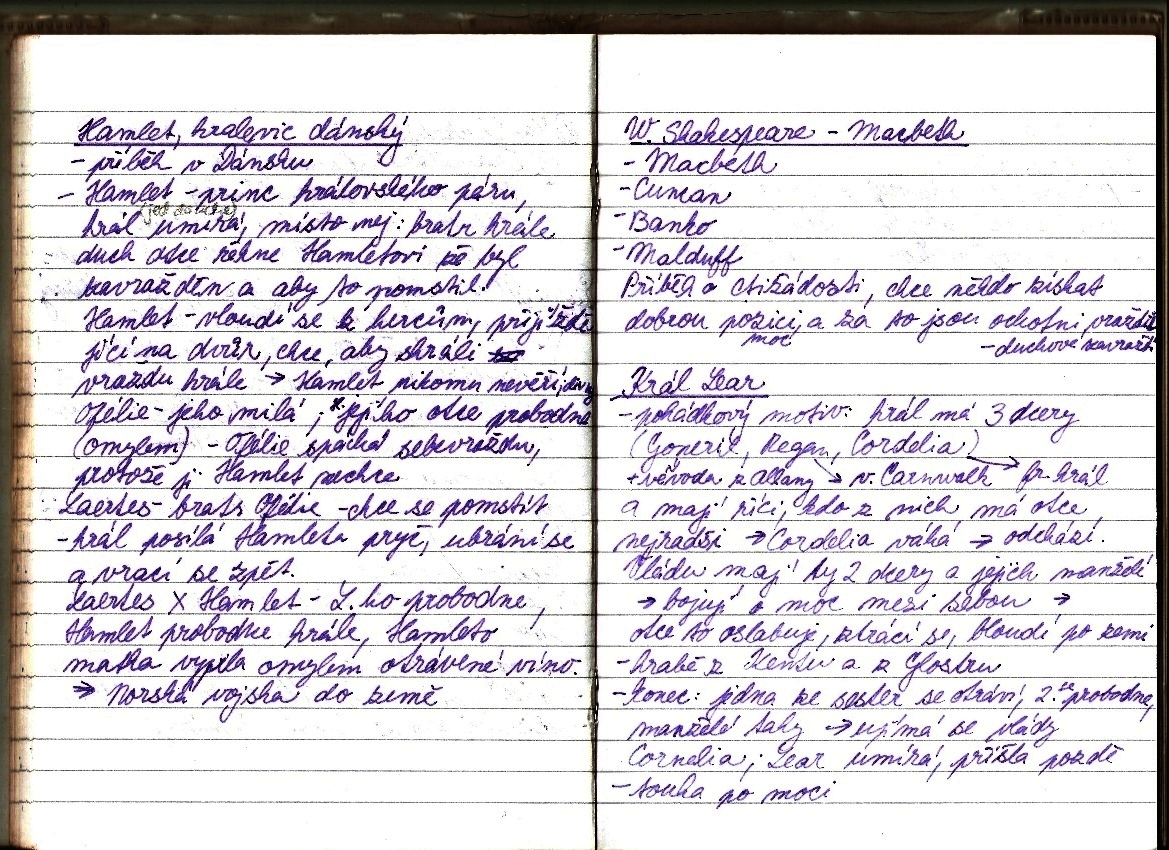 Hamlet, kralevic dánský
- příběh v Dánsku
- Hamlet - princ královského páru,
král umírá, místo něj: bratr krále
duch otce řekne Hamletovi že byl
zavražděn a aby to pomstil.
Hamlet - vloudí se k hercům, přijíždě
jící na dvůr, chce, aby zhráli
vraždu krále → Hamlet nikomu nevěří,
Ofélie - jeho milá; jejího otce probodne
(omylem) - Ofélie spáchá sebevraždu,
protože ji Hamlet nechce
Laertes - bratr Ofélie - chce se pomstít
- král posílá Hamleta pryč, ubrání se
a vrací se zpět.
Laertes X Hamlet - L. ho probodne,
Hamlet probodne krále, Hamleto
matka vypila omylem otrávené víno.
⇒ Norská vojska do země
W. Shakespeare - Macbeth
- Macbeth
- Cuncan
- Banko
- Malduff
Příběh o ctižádosti, chce někdo získat
dobrou pozici, a za to jsou ochotni vraždit
moc
- duchové zavražd
Král Lear
- pohádkový motiv: král má 3 dcery
(Goneril, Regan, Cordelia)
+ vévoda z Albany → v. Cornwalh fr. král
a mají říci, kdo z nich má otce
nejradši → Cordelia váhá → odchází.
Vládu mají ty 2 dcery a jejich manželé
→ bojují o moc mezi sebou →
otce to oslabuje, ztrácí se, bloudí po zemi
- hrabě z Kentu a z Glostru
- konec: jedna ze sester se otráví, 2. se probodne,
manželé taky → ujímá se vlády
Cornelia; Lear umírá, přišla pozdě
- touha po moci